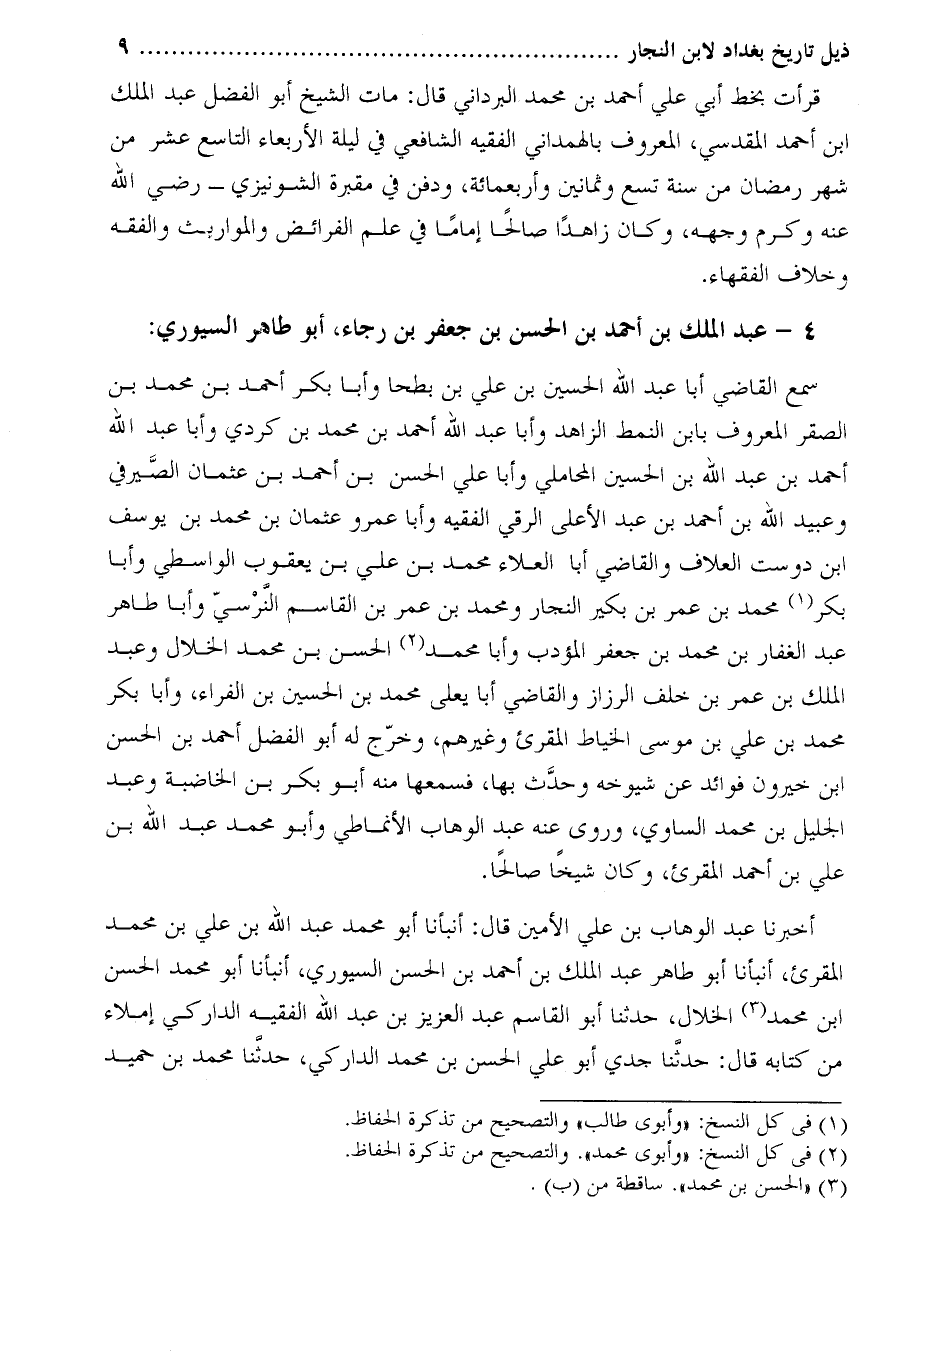 ذيل تاريخ بغداد لابن النجار ............................................................ ٩
قرأت بخط أبي علي أحمد بن محمد البرداني قال: مات الشيخ أبو الفضل عبد الملك
ابن أحمد المقدسي، المعروف بالهمداني الفقيه الشافعي في ليلة الأربعاء التاسع عشر من
شهر رمضان من سنة تسع وثمانين وأربعمائة، ودفن في مقبرة الشونيزي – رضي الله
عنه وكرم وجهه، وكان زاهدًا صالحًا إمامًا في علم الفرائض والمواريث والفقه
وخلاف الفقهاء.
٤ – عبد الملك بن أحمد بن الحسن بن جعفر بن رجاء، أبو طاهر السيوري:
سمع القاضي أبا عبد الله الحسين بن علي بن بطحا وأبا بكر أحمد بن محمد بن
الصقر المعروف بابن النمط الزاهد وأبا عبد الله أحمد بن محمد بن كردي وأبا عبد الله
أحمد بن عبد الله بن الحسين المحاملي وأبا علي الحسن بن أحمد بن عثمان الصَّيرفي
وعبيد الله بن أحمد بن عبد الأعلى الرقي الفقيه وأبا عمرو عثمان بن محمد بن يوسف
ابن دوست العلاف والقاضي أبا العلاء محمد بن علي بن يعقوب الواسطي وأبا
بكر(١) محمد بن عمر بن بكير النجار ومحمد بن عمر بن القاسم النَّرْسيّ وأبا طاهر
عبد الغفار بن محمد بن جعفر المؤدب وأبا محمد(٢) الحسن بن محمد الخلال وعبد
الملك بن عمر بن خلف الرزاز والقاضي أبا يعلى محمد بن الحسين بن الفراء، وأبا بكر
محمد بن علي بن موسى الخياط المقرئ وغيرهم، وخرّج له أبو الفضل أحمد بن الحسن
ابن خيرون فوائد عن شيوخه وحدَّث بها، فسمعها منه أبو بكر بن الخاضبة وعبد
الجليل بن محمد الساوي، وروى عنه عبد الوهاب الأنماطي وأبو محمد عبد الله بن
علي بن أحمد المقرئ، وكان شيخًا صالحًا.
أخبرنا عبد الوهاب بن علي الأمين قال: أنبأنا أبو محمد عبد الله بن علي بن محمد
المقرئ، أنبأنا أبو طاهر عبد الملك بن أحمد بن الحسن السيوري، أنبأنا أبو محمد الحسن
ابن محمد(٣) الخلال، حدثنا أبو القاسم عبد العزيز بن عبد الله الفقيه الداركي إملاء
من كتابه قال: حدثَّنا جدي أبو علي الحسن بن محمد الداركي، حدثَّنا محمد بن حميد
(١) فى كل النسخ: «وأبوى طالب» والتصحيح من تذكرة الحفاظ.
(٢) فى كل النسخ: «وأبوى محمد». والتصحيح من تذكرة الحفاظ.
(٣) «الحسن بن محمد». ساقطة من (ب) .